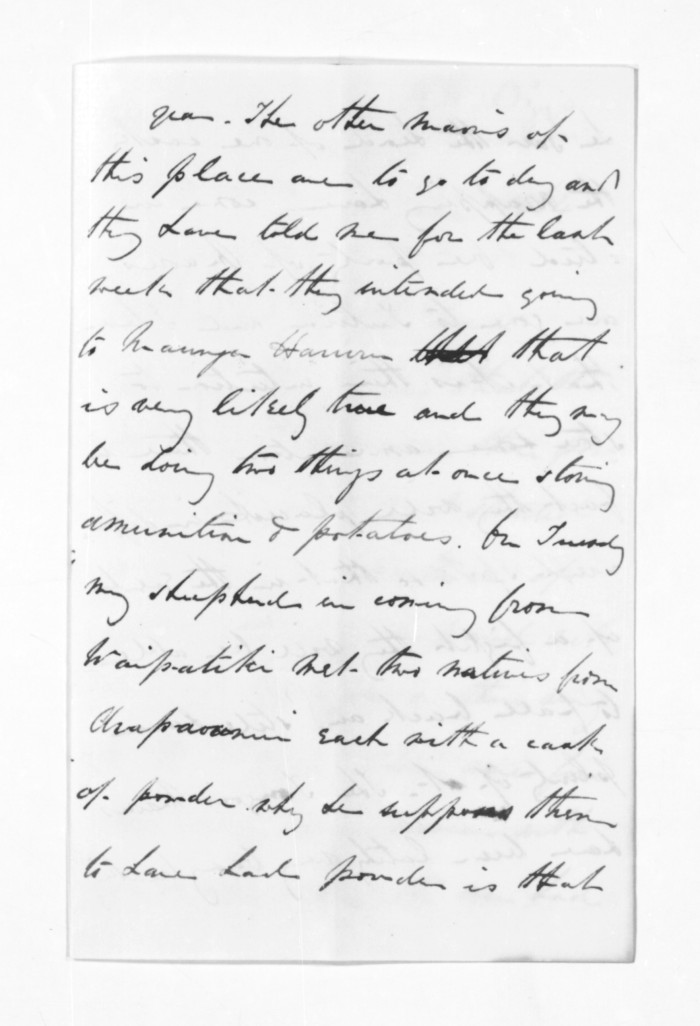 year. The other maoris of
this place are to go to day and
they have told me for the last
week that they intended going
to Maunga Haruru that
is very likely true and they may
be doing two things at once storing
amunition & potatoes. On Tuesday
my shepherd in coming from
Waipatiki met two natives from
each with a cask
of powder why he supposes them
to have had powder is that